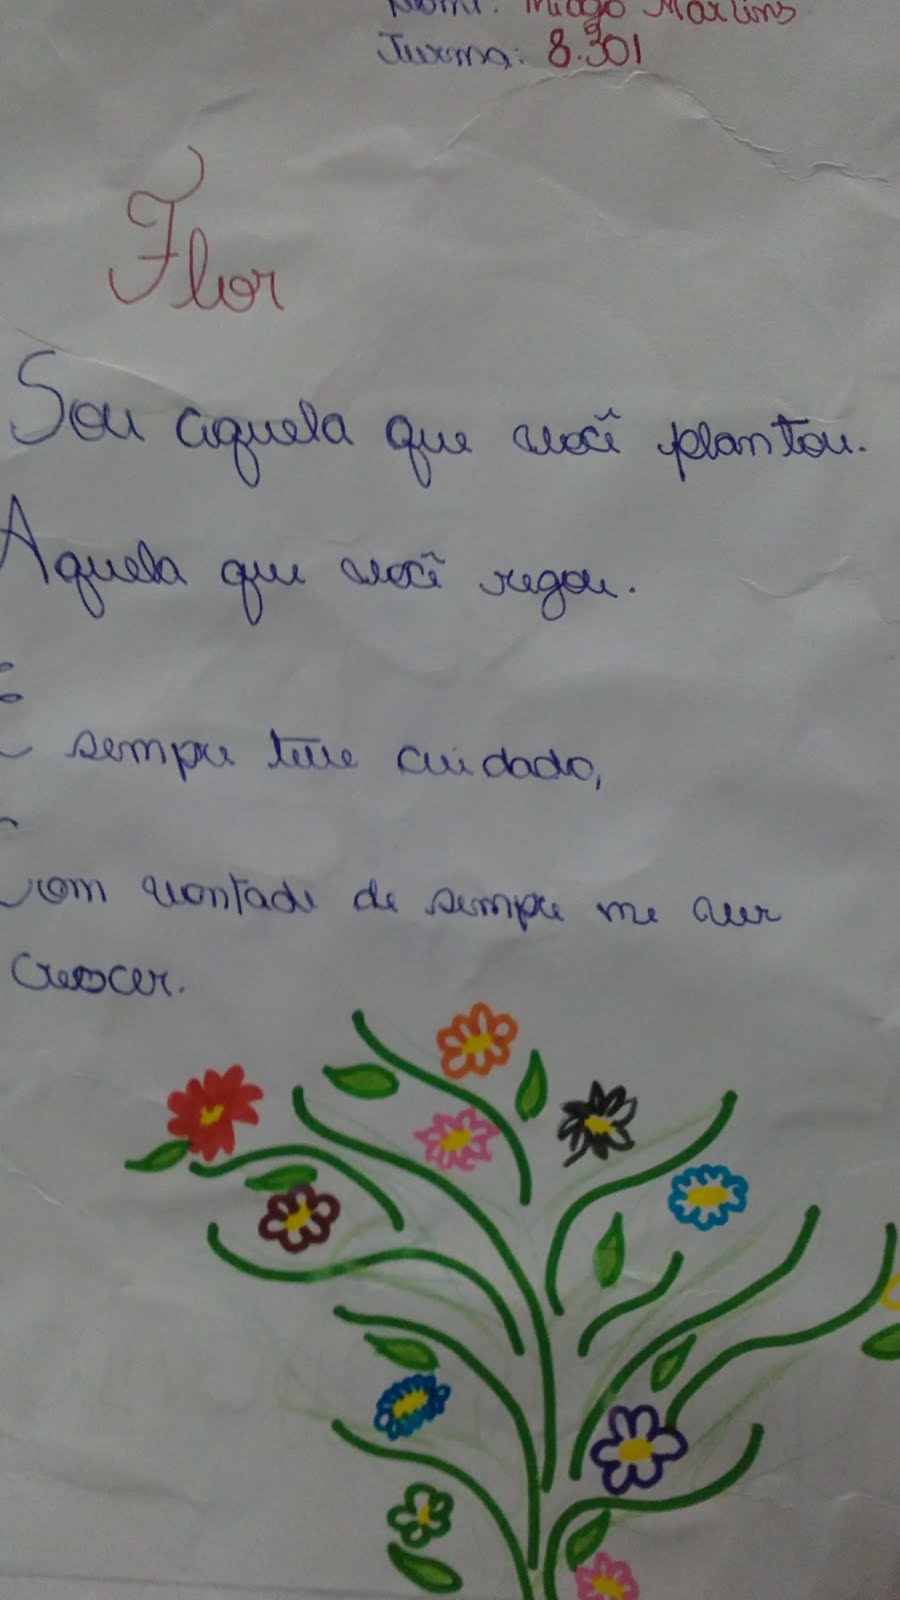 Nome: Thiago Martins
Turma: 8.301
Flor
Sou aquela que você plantou.
Aquela que você regou.
E sempre teve cuidado,
Com vontade de sempre me ver
crescer.